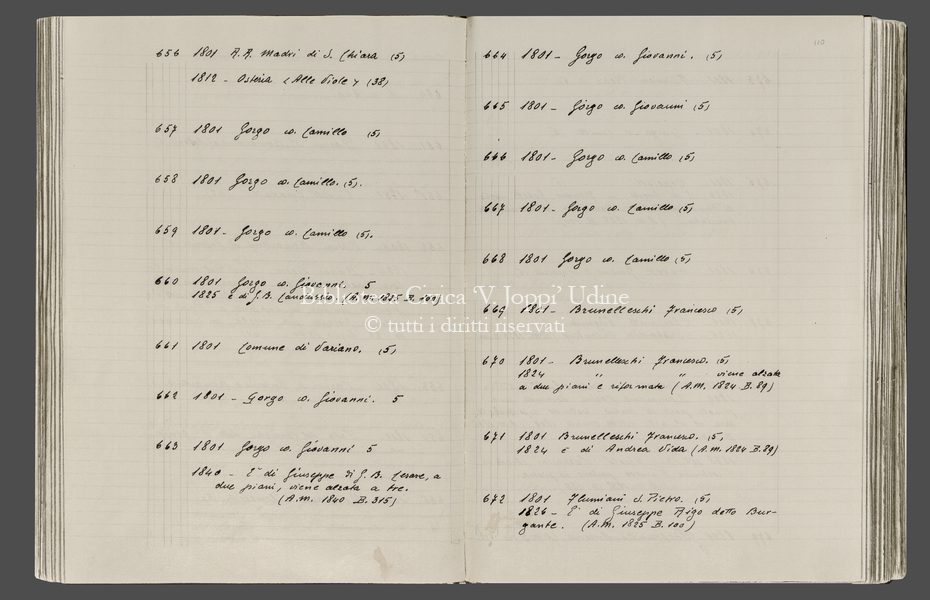 656 1801 R.R. Madri di S. Chiara (5)
1812 - Osteria < Alle Viole > (38)
657 1801 Gorgo co. Camillo (5)
658 1801 Gorgo co. Camillo. (5).
659 1801 - Gorgo co. Camillo (5).
660 1801 Gorgo co. Giovanni. 5
1825 è di G.B. (A.M. 1825 B.
661 1801 Comune di Variano. (5)
662 1801 - Gorgo co. Giovanni. 5
663 1801 Gorgo co. Giovanni 5
1840 - E' di Giuseppe di G.B. Cesare, a
due piani, viene alzata a tre.
(A.M. 1840 B. 315)
110
664 1801 - Gorgo co. Giovanni. (5)
665 1801 - Gorgo co. Giovanni (5)
666 1801 - Gorgo co. Camillo (5)
667 1801 - Gorgo co. Camillo (5)
668 1801 Gorgo co. Camillo (5)
669 1801 - Brunelleschi Francesco (5)
670 1801 - Brunelleschi Francesco. (5)
1824 " " viene alzata
a due piani e riformata (A.M. 1824 B. 89)
671 1801 Brunelleschi Francesco. (5)
1824 è di Andrea Vida (A.M. 1824 B. 89)
672 1801 Flumiani d. Pietro. (5)
1826 - E' di Giuseppe Rigo detto Bur-
gante. (A.M. 1825 B. 100)
Biblioteca Civica 'V. Joppi' Udine
© tutti i diritti riservati